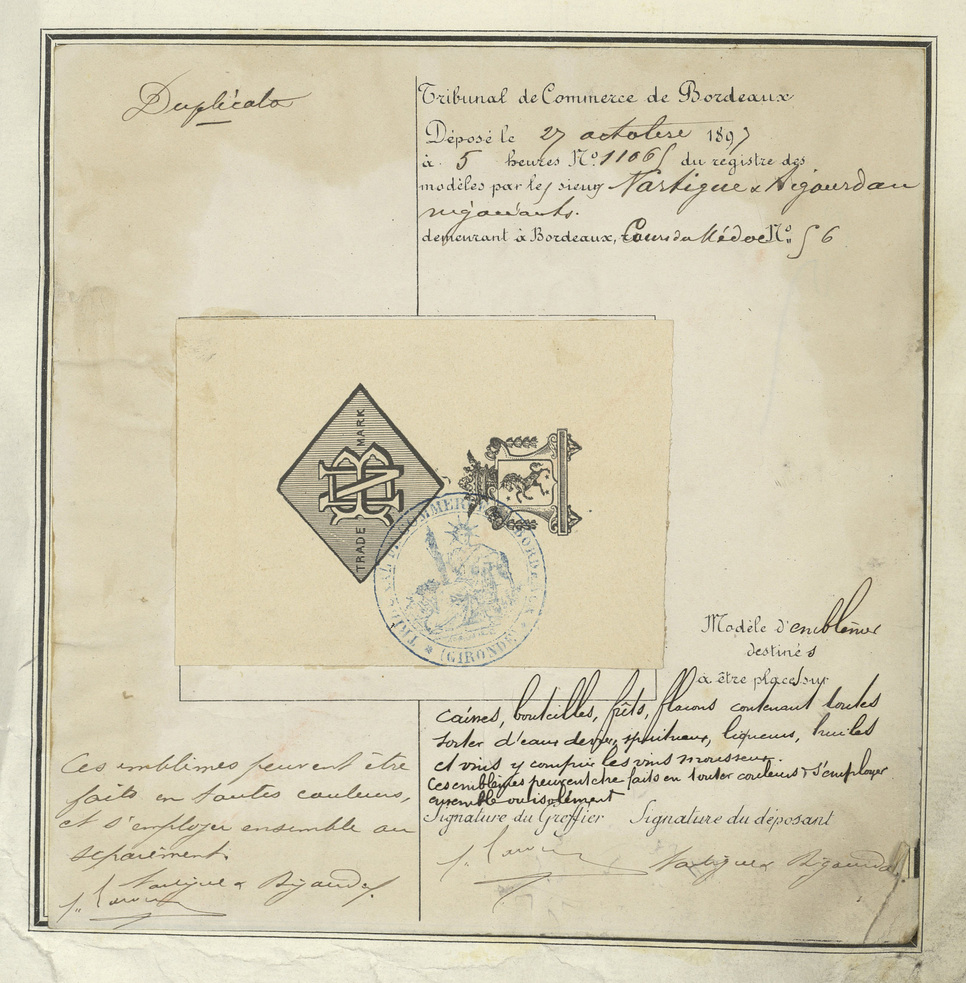 Duplicata
Tribunal de Commerce de Bordeaux
Déposé le 27 octobre 1897
à 5 heures N° 11065 du registre des
modèles par les sieurs Nartigue & Bigourdan
négociants.
demeurant à Bordeaux, Cours du Médoc N° 56
TRADE MARK
NB
TRIBUNAL DE COMMERCE BORDEAUX
(GIRONDE)
Modèle d'emblèmes
destinés
à être placés sur
caisses, bouteilles, fûts, flacons contenant toutes
sortes d'eaux de vie, spiritueux, liqueurs, huiles
et vins y compris les vins mousseux.
Ces emblèmes peuvent être faits en toutes couleurs & s'employer
ensemble ou isolément
Signature du Greffier Signature du déposant
Nartigue & Bigourdan
Ces emblèmes peuvent être
faits en toutes couleurs,
et s'employer ensemble ou
séparément.
Nartigue & Bigourdan